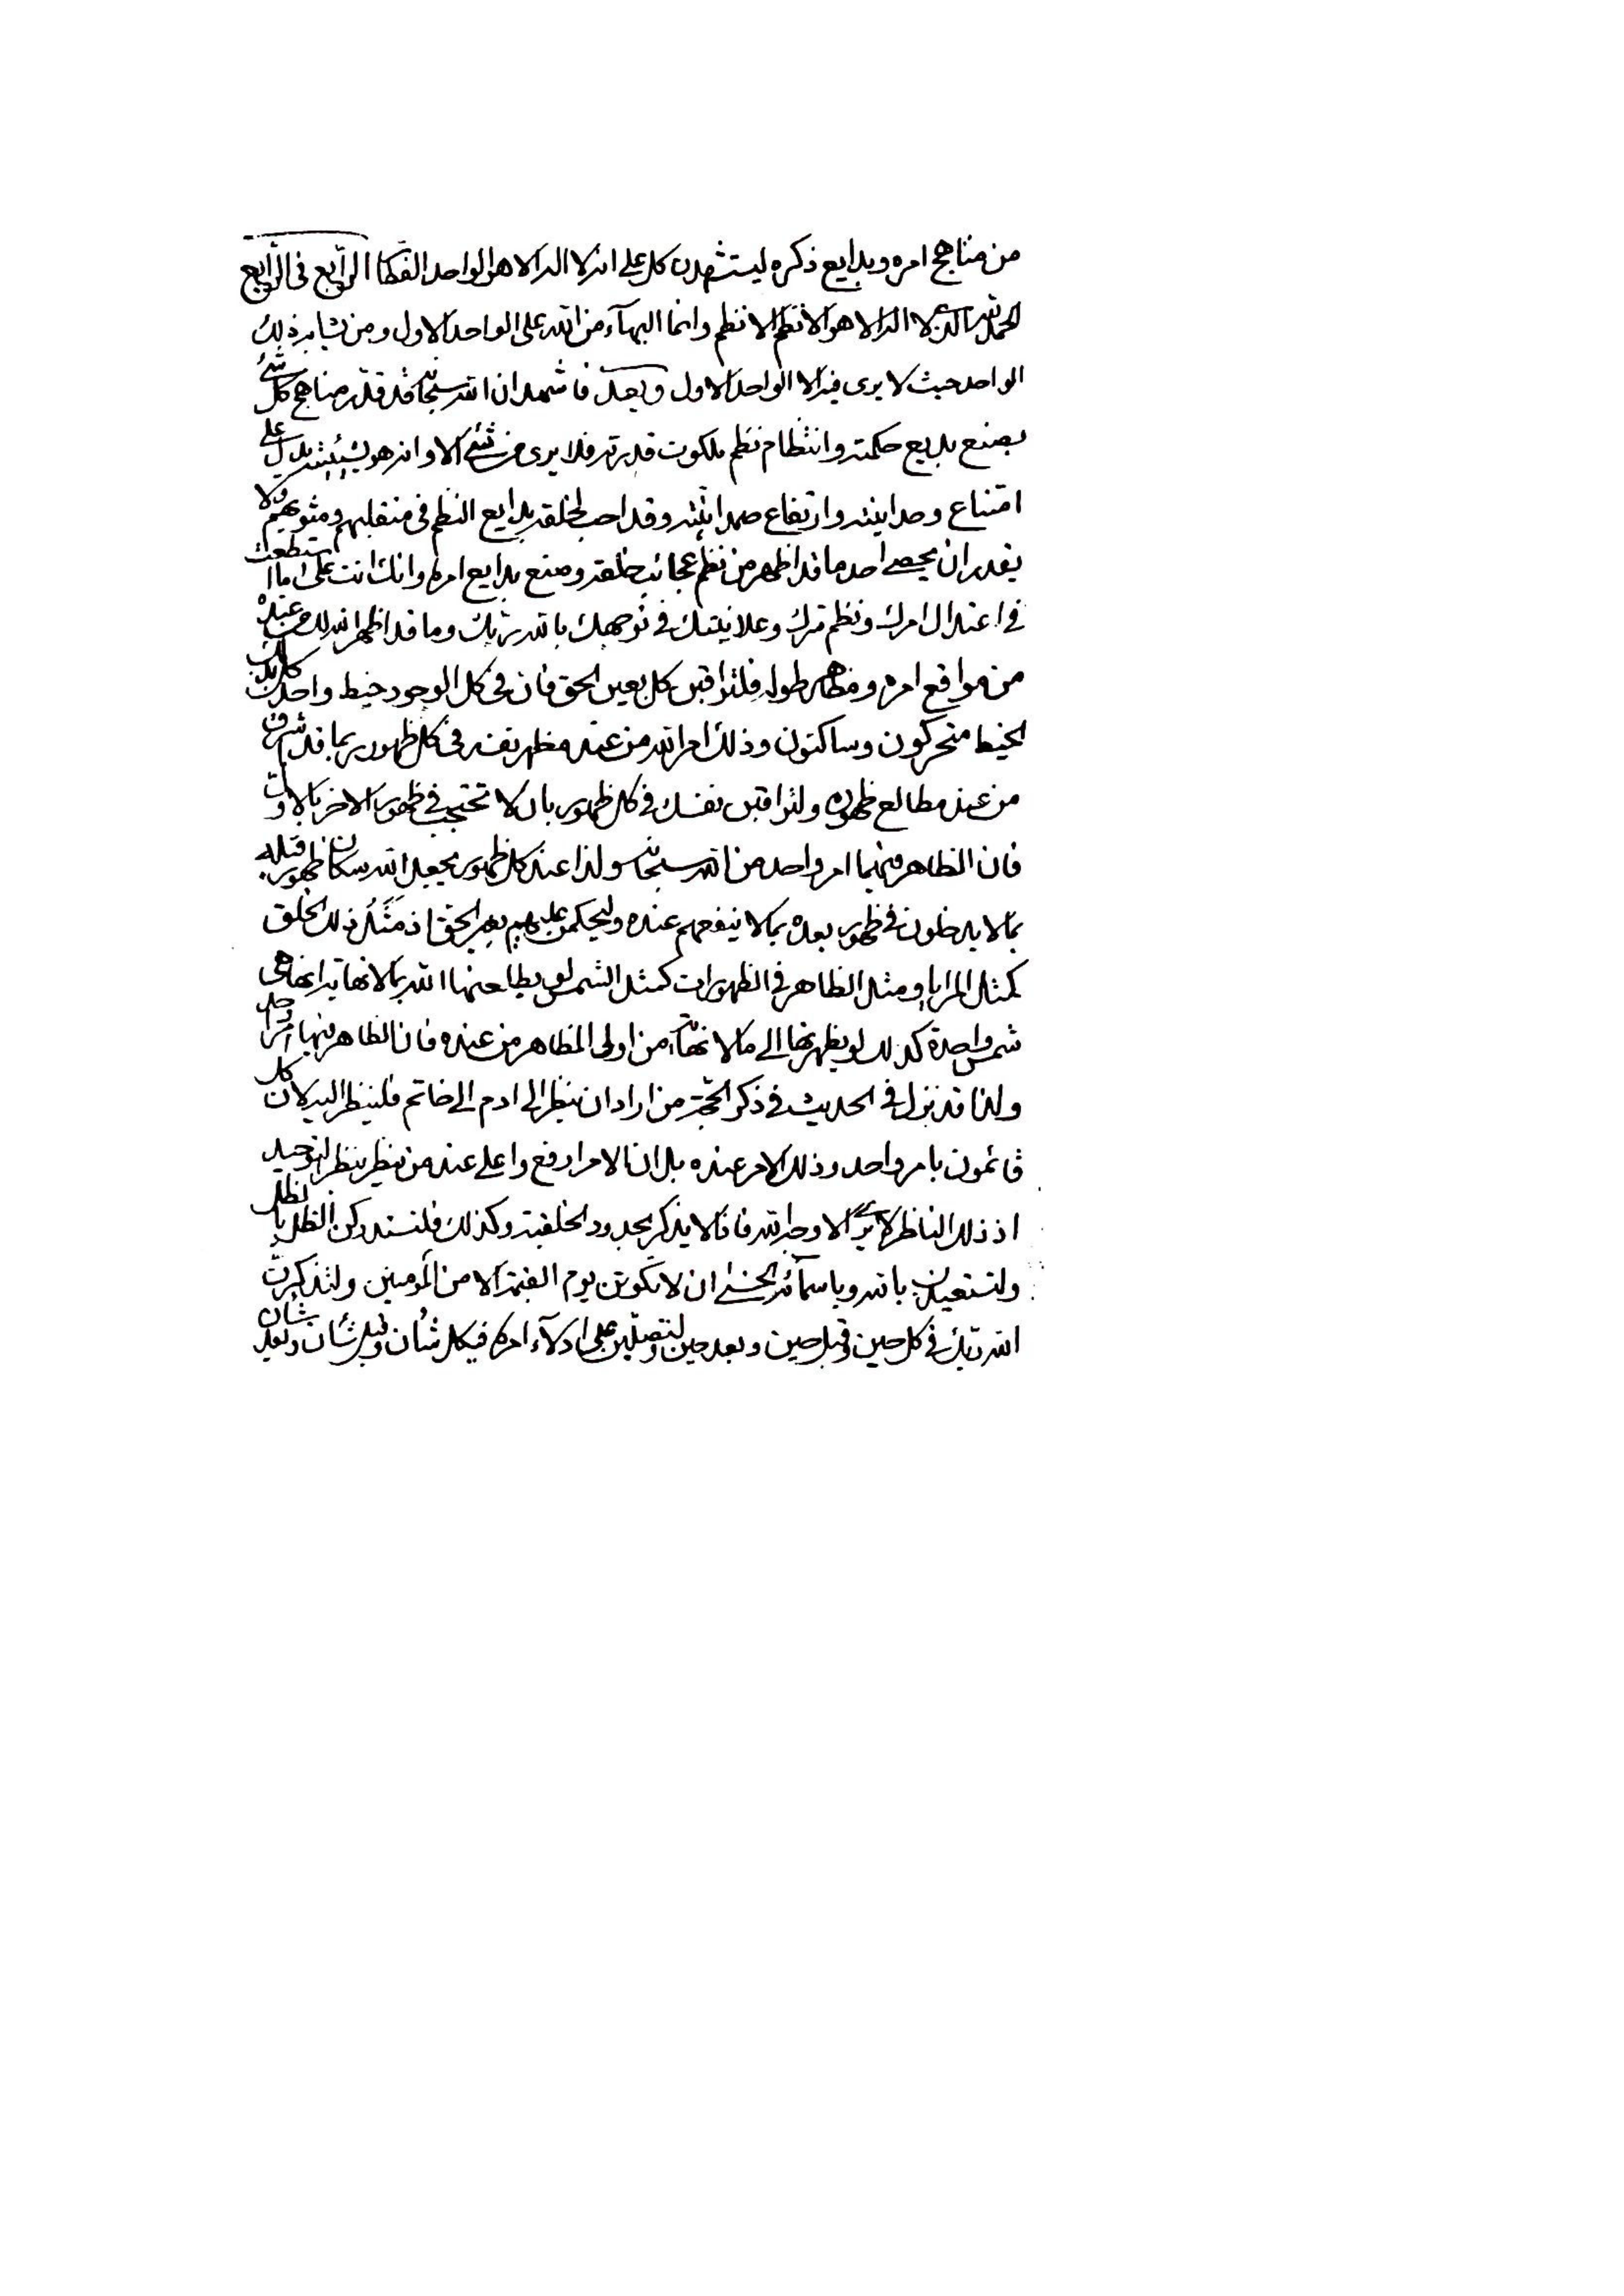 من مناهج امره وبدایع ذکره لیستشهدن کل علی انه لا اله الا هو الواحد الفظاظ الرابع فی الرابع
الحمد لله الذی لا اله الا هو الانظم الانظم وانما البهآء من الله علی الواحد الاول ومن یشابه ذلک
الواحد حیث لا یری فیه الا الواحد الاول وبعد فاشهد ان الله سبحانه قد قدر مناهج کل شیء
بصنع بدیع حکمته وانتظام نظم ملکوت قدرته فلا یری من شیء الا وانه هو بشیئیته یدل علی
امتناع وحدانیته وارتفاع صمدانیته وقد احب لخلقه بدایع النظم فی منقلبهم ومثویهم ولا
یقدر ان یحصی احد ما قد اظهر من نظم عجائب خلقه وصنع بدایع امره وانک انت علی ما استطعت
فی اعتدال امرک ونظم سرک وعلانیتک فی توجهک بالله ربک وما قد اظهر الله لک من عنده
من مواقع امره ومظاهر طوله فلتراقبن کل بعین الحق فان فی کل الوجود خیط واحد کل بذلک
الخیط متحرکون وساکنون وذلک امر الله من عند مظهر نفسه فی کل ظهور بما قد اشرق
من عند مطالع ظهوره ولتراقبن نفسک فی کل ظهور بان لا تحتجب فی ظهور الاخر بالاول
فان الظاهر فیهما امر واحد من الله سبحانه ولذا عند کل ظهور یجعل الله سکان ظهور قبله
بما لا یدخلون فی ظهور بعده بما لا ینفعهم عنده ولیحکمن علیهم بغیر الحق اذ مَثَل ذلک الخلق
کمثل المرایا ومثل الظاهر فی الظهورات کمثل الشمس لو یطلعنها الله بما لا نهایة انها هی
شمس واحدة کذلک لو یظهرنها الی ما لا نهایة من اولی المظاهر من عنده فان الظاهر فیها امر واحد
ولذا قد نزل فی الحدیث فی ذکر الحجة من اراد ان ینظر الی ادم الی خاتم فلینظر الیه لان کل
قائمون بامر واحد وذلک الامر عنده بل ان الامر ارفع واعلی عند من ینظر بنظر التوحید
اذ ذلک الناظر لا یری الا وجه الله فاذا لا یذکر بحدود الخلقیة وکذلک فلتستدرکن الظل بالظل
ولتستعیذن بالله وباسمآئه الحسنی ان لا تکونن یوم القیمة الا من المؤمنین ولتذکرن
الله ربک فی کل حین وقبل حین وبعد حین ولتصلین علی ادلآء امره فی کل شأن وقبل شأن وبعد شأن